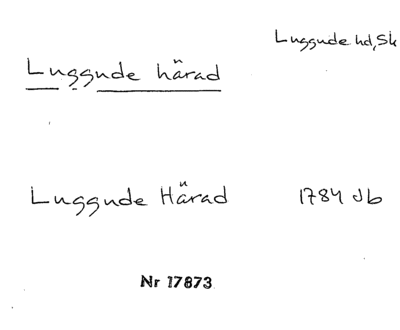 Luggude hd, Sk
Luggude härad
Luggude Härad 1784 Jb
Nr 17873